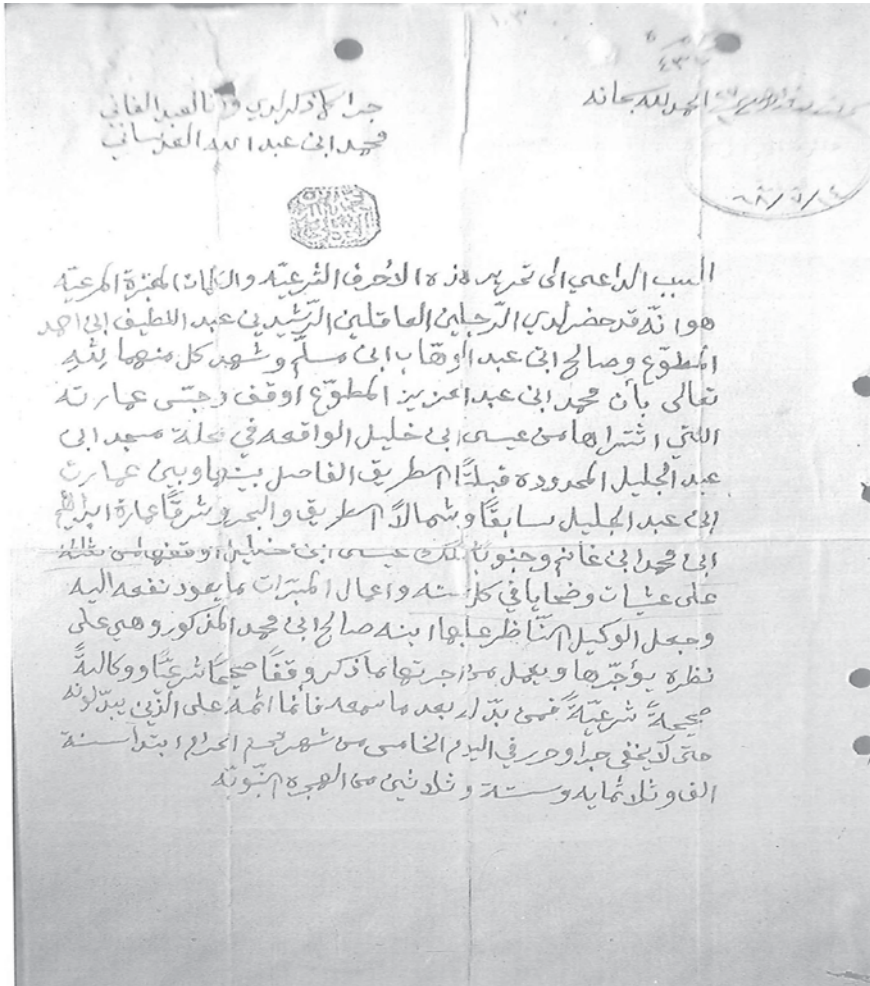 الحمد لله سبحانه
٦٨/٥/١٤
جرا كما ذكر لدي وانا العبد الفاني
محمد ابن عبد الله العدساني
السبب الداعي الى تحرير هذه الاحرف الشرعيّه والكلمات المعتبرة المرعيّه
هو انّه قد حضر لدي الرّجلين العاقلين الرّشيدين عبد اللطيف ابن احمد
المطوّع وصالح ابن عبد الوهّاب ابن مسلّم وشهد كل منهما لله
تعالى بأن محمد ابن عبد العزيز المطوّع اوقف وحبّس عمارته
اللتي اشتراها من عيسى ابن خليل الواقعه في محلة مسجد ابن
عبد الجليل المحدوده قبلةً الطريق الفاصل بينها وبين عمارت
ابن عبد الجليل سابقًا وشمالاً الطريق والبحر وشرقًا عمارة ابراهيم
ابن محمد ابن غانم وجنوبًا ملك عيسى ابن خليل اوقفها من ثلثه
على عشيات وضحايا في كل سنه واعمال المبرّات مما يعود نفعه اليه
وجعل الوكيل النّاظر عليها ابنه صالح ابن محمد المذكور وهي على
نظره يؤجّرها ويعمل من اجرتها ما ذكر وقفًا صحيحًا شرعيًّا ووكالةً
صحيحةً شرعيّةً فمن بدّله بعد ما سمعه فأنما اثمه على الذّين يبدّلونه
حتى لا يخفى جرا وحرر في اليوم الخامس من شهر محرم الحرام ابتدا سنة
الف وثلاثمايه وستة وثلاثين من الهجره النّبويّه